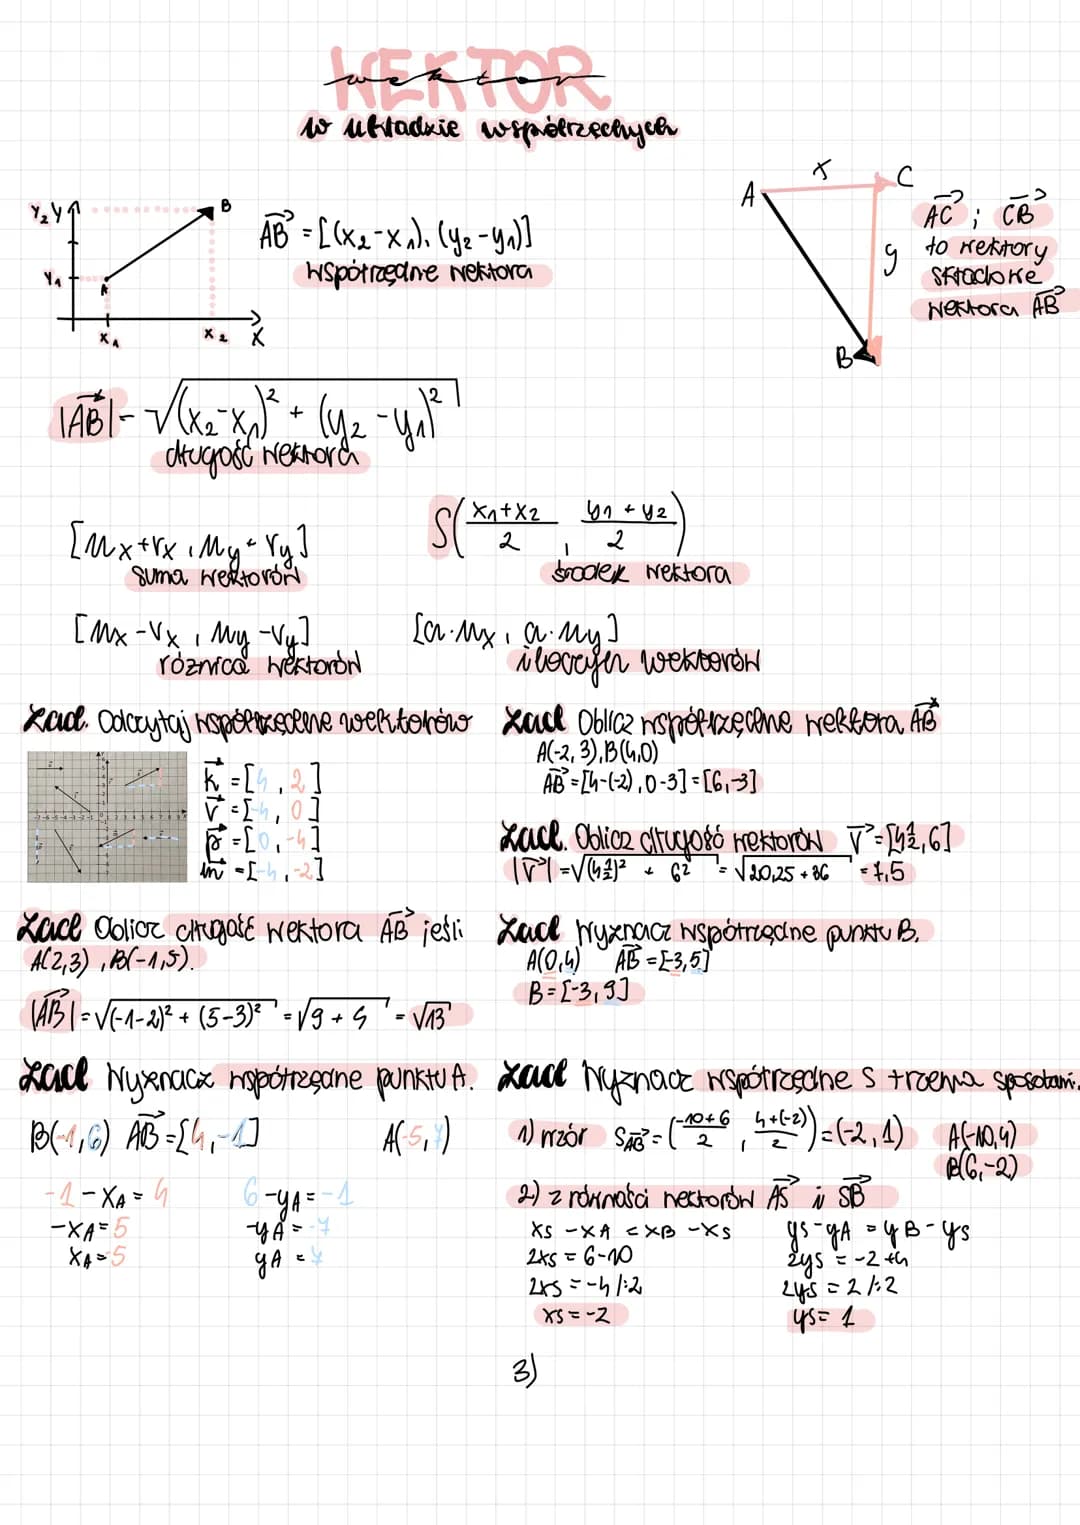 WEKTOR
wektor
w układzie współrzędnych
Y₂ Y
B
Y₁
A
X₁
X₂
X
AB→ = [(x₂-x₁), (y₂-y₁)]
współrzędne wektora
A
x
C
y
B
AC→ ; CB→
to wektory
składowe
wektora AB→
|AB→| = √(x₂-x₁)² + (y₂-y₁)²
długość wektora
[ux+vx , uy+vy]
suma wektorów
S(x₁+x₂/2 , y₁+y₂/2)
środek wektora
[ux-vx , uy-vy]
różnica wektorów
[a·ux , a·uy]
iloczyn wektorów
Zad. Odczytaj współrzędne wektorów
k→ = [4, 2]
v→ = [-4, 0]
p→ = [0, -4]
m→ = [-4, -2]
Zad Oblicz współrzędne wektora AB→
A(-2,3), B(4,0)
AB→ = [4-(-2), 0-3] = [6,-3]
Zad. Oblicz długość wektorów v→ = [4½, 6]
|v→| = √(4½)² + 6² = √20,25 + 36 = 7,5
Zad Oblicz długość wektora AB→ jeśli
A(2,3), B(-1,5).
|AB→| = √(-1-2)² + (5-3)² = √9 + 4 = √13
Zad Wyznacz współrzędne punktu B.
A(0,4) AB→ = [-3,5]
B = [-3,9]
Zad Wyznacz współrzędne punktu A.
B(-1,6) AB→ = [4,-1] A(-5,7)
-1 - xA = 4
-xA = 5
xA = -5
6 - yA = -1
-yA = -7
yA = 7
Zad Wyznacz współrzędne S trzema sposobami.
1) wzór SAB→ = (-10+6/2 , 4+(-2)/2) = (-2,1)
A(-10,4)
B(6,-2)
2) z równości wektorów AS→ i SB→
xs - xA = xB - xs
2xs = 6-10
2xs = -4 /:2
xs = -2
ys - yA = yB - ys
2ys = -2+4
2ys = 2 /:2
ys = 1
3)